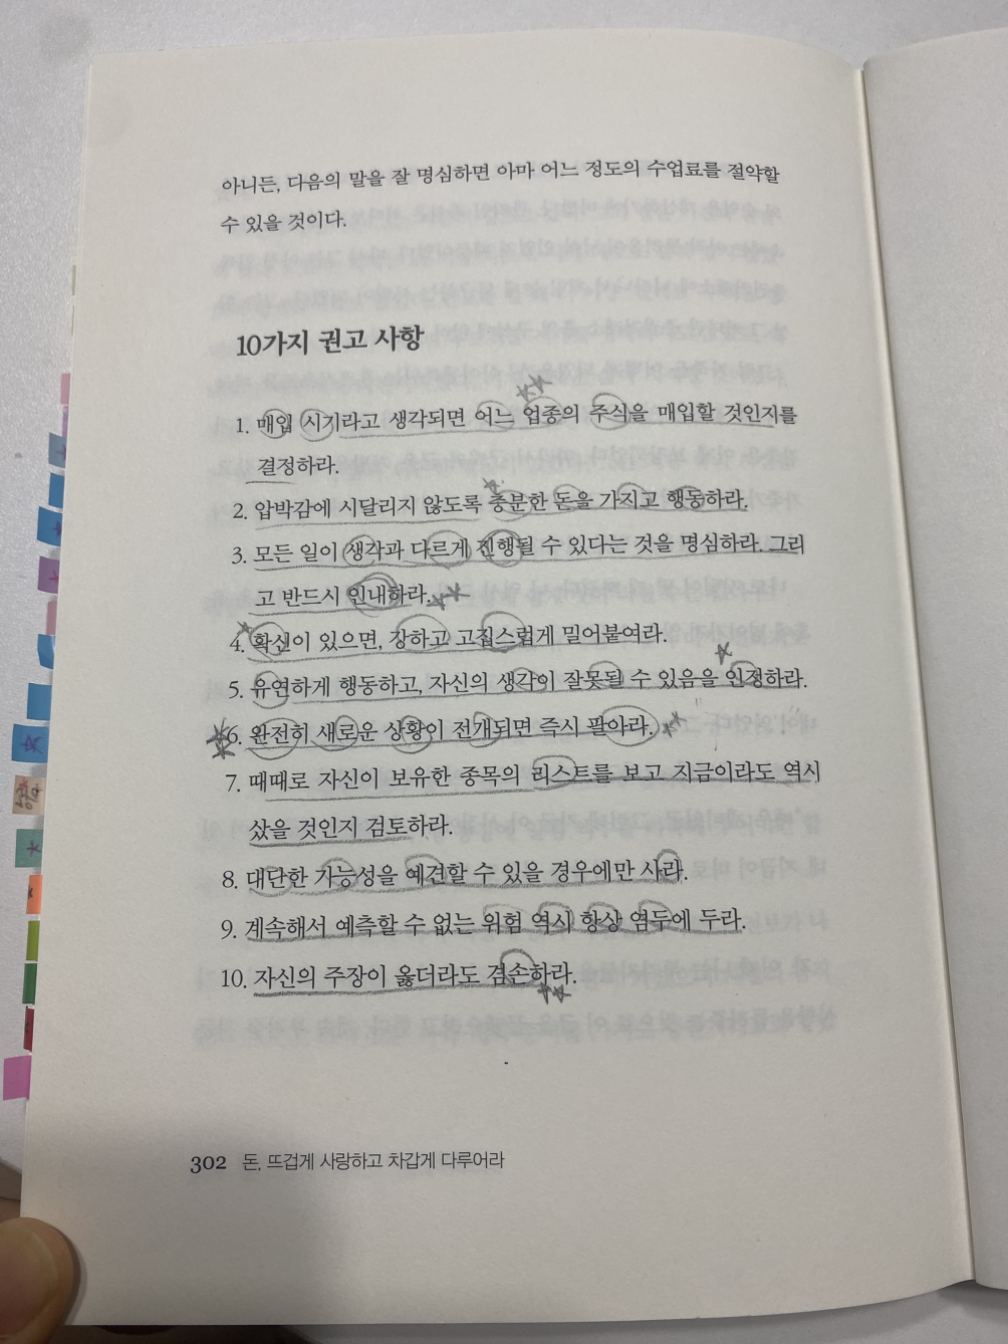 아니든, 다음의 말을 잘 명심하면 아마 어느 정도의 수업료를 절약할
수 있을 것이다.
10가지 권고 사항
1. 매입 시기라고 생각되면 어느 업종의 주식을 매입할 것인지를
결정하라.
2. 압박감에 시달리지 않도록 충분한 돈을 가지고 행동하라.
3. 모든 일이 생각과 다르게 진행될 수 있다는 것을 명심하라. 그리
고 반드시 인내하라.
4. 확신이 있으면, 강하고 고집스럽게 밀어붙여라.
5. 유연하게 행동하고, 자신의 생각이 잘못될 수 있음을 인정하라.
6. 완전히 새로운 상황이 전개되면 즉시 팔아라.
7. 때때로 자신이 보유한 종목의 리스트를 보고 지금이라도 역시
샀을 것인지 검토하라.
8. 대단한 가능성을 예견할 수 있을 경우에만 사라.
9. 계속해서 예측할 수 없는 위험 역시 항상 염두에 두라.
10. 자신의 주장이 옳더라도 겸손하라.
302 돈, 뜨겁게 사랑하고 차갑게 다루어라